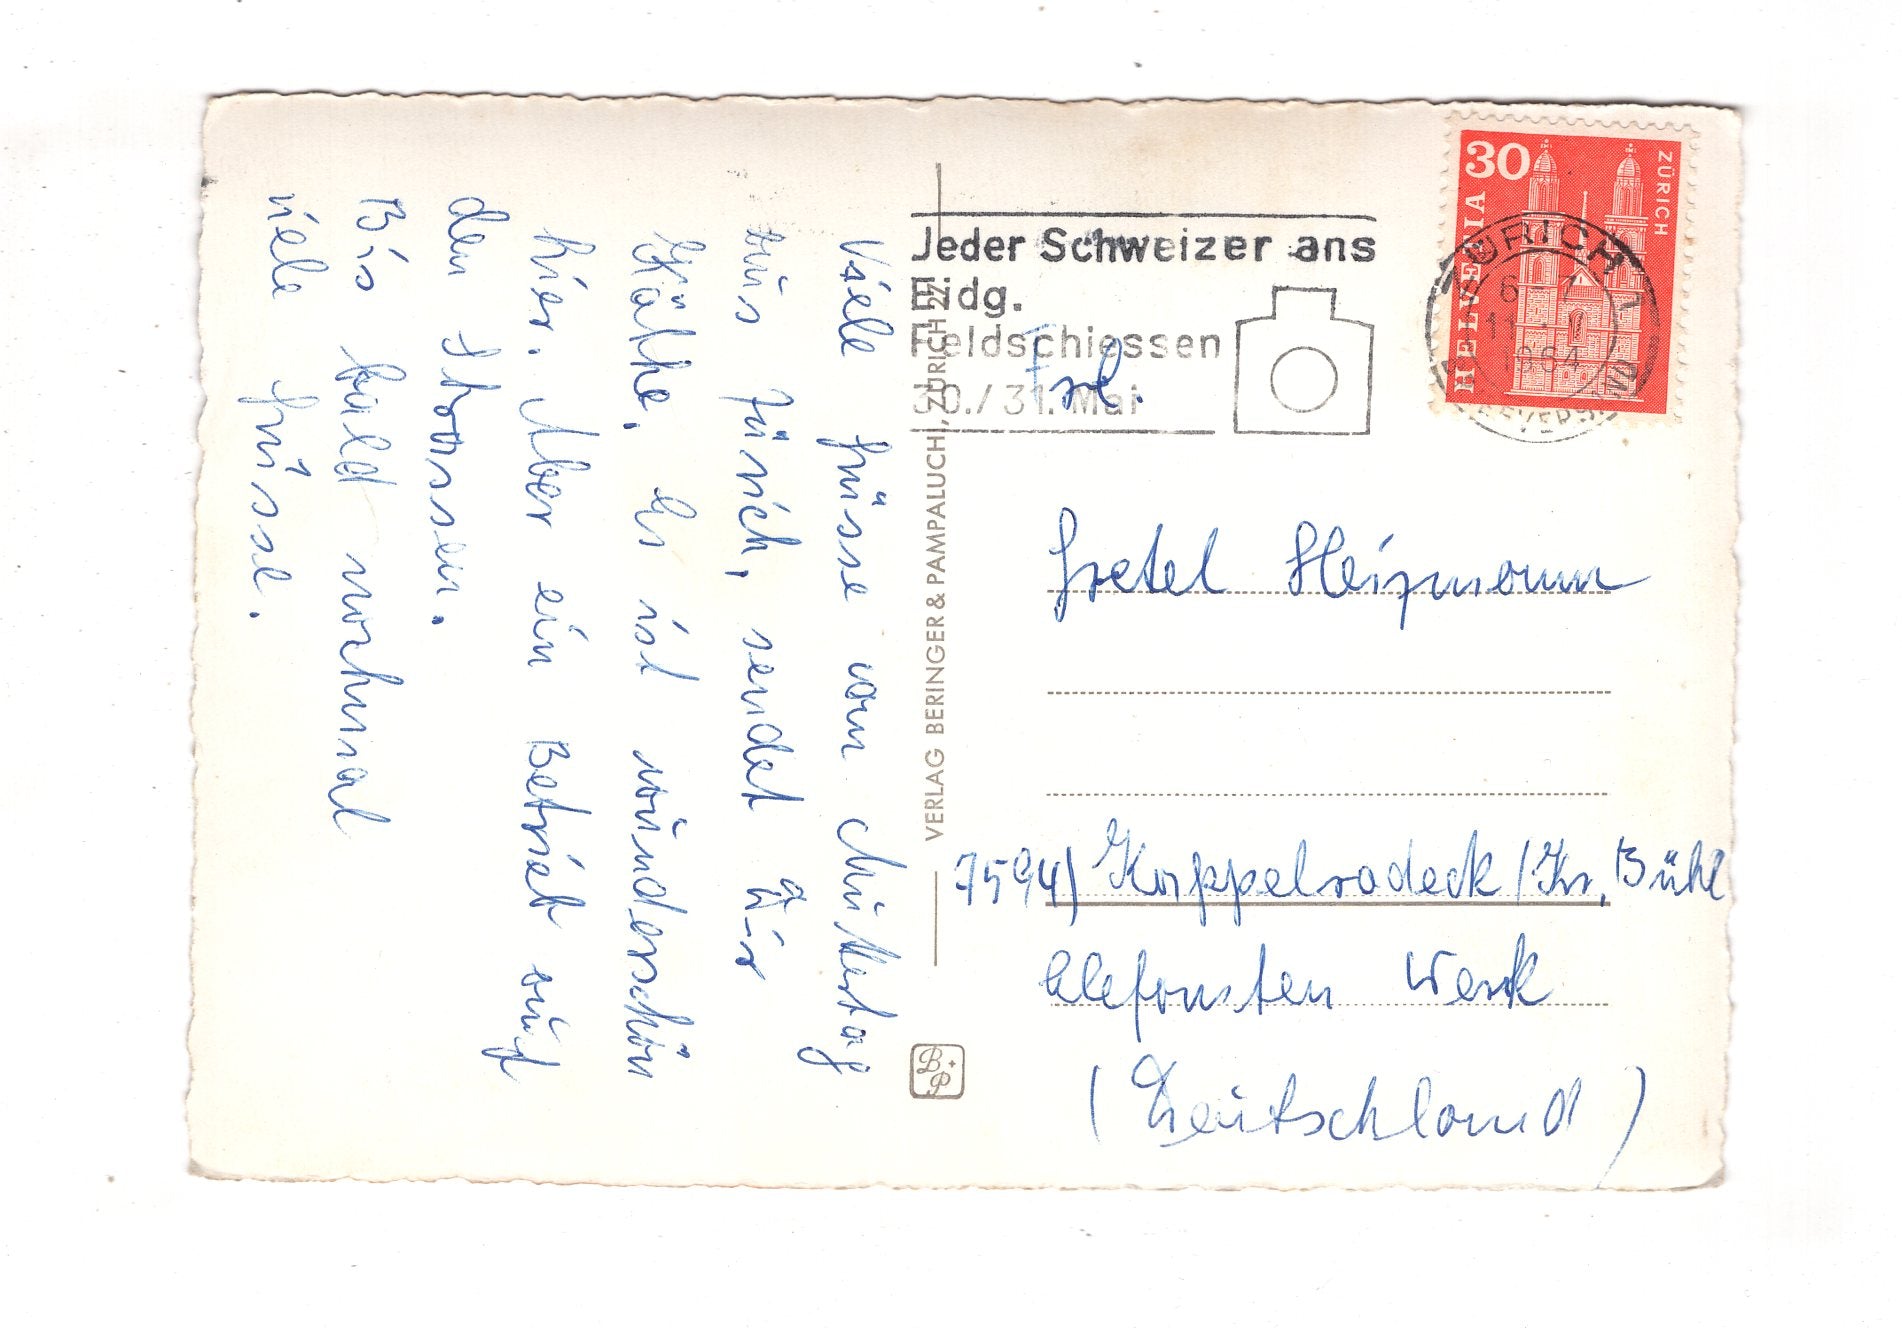 Viele Grüsse vom Muttertag
aus Zürich, sendet Dir
Käthe. Es ist wunderschön
hier. Aber ein Betrieb auf
den Strassen.
Bis bald nochmal
viele Grüsse.
Jeder Schweizer ans
Eidg.
Feldschiessen
30./31. Mai
30
ZÜRICH
HELVETIA
ZÜRICH 1
6-7
11. V
1964
BRIEFVERSAND
VERLAG BERINGER & PAMPALUCHI, ZÜRICH
B+P
Frl.
Gretel Heizmann
7594) Kappelrodeck / Kr. Bühl
Werk
(Deutschland)